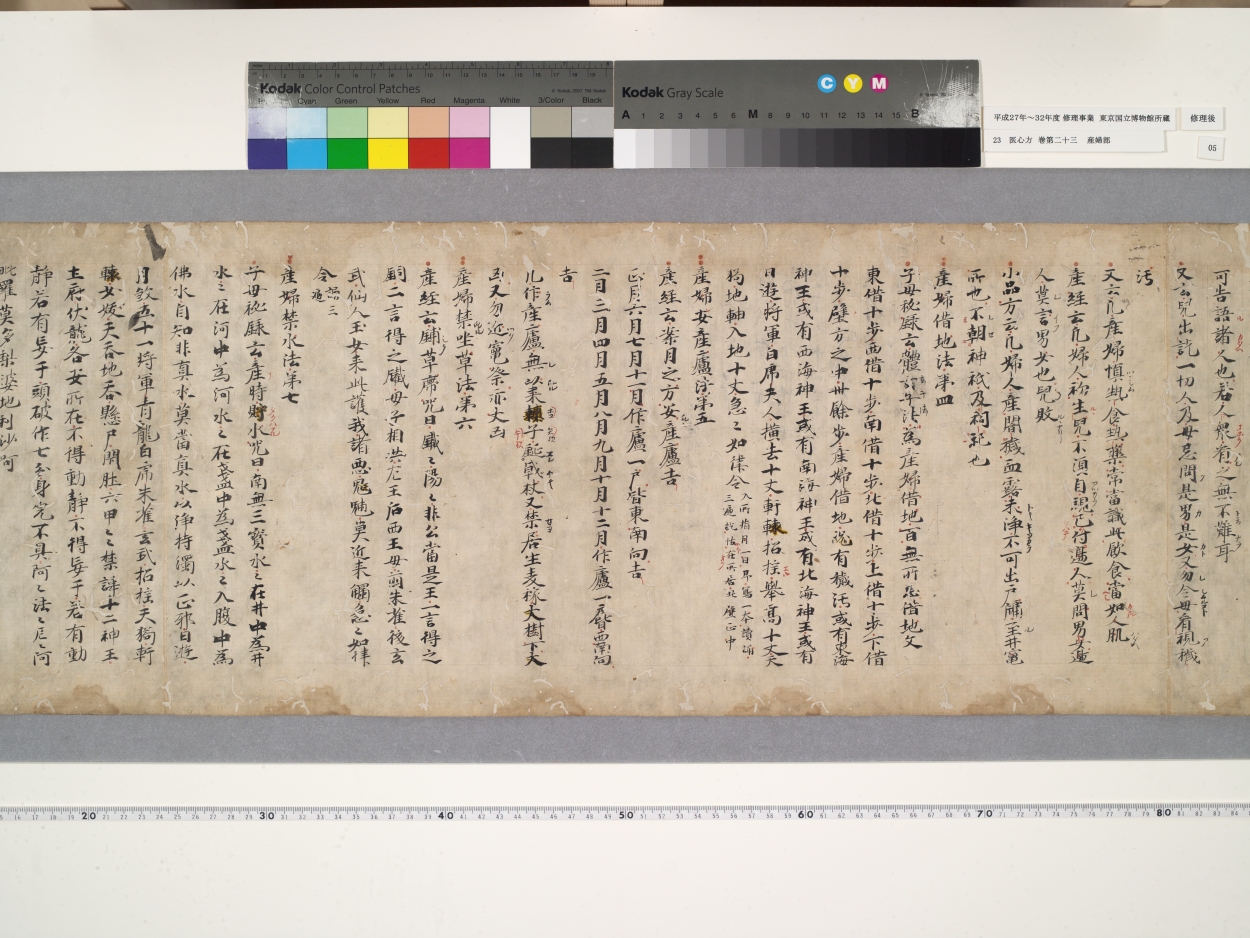 Kodak Color Control Patches
© Kodak, 2007 TM: Kodak
Cyan Green Yellow Red Magenta White 3/Color Black
Kodak Gray Scale
C Y M
A 1 2 3 4 5 6 M 8 9 10 11 12 13 14 15 B
平成27年〜32年度 修理事業 東京国立博物館所蔵
修理後
23 医心方 巻第二十三 産婦部
05
可告語諸人也若人無之無不難耳
又云兒出訖一切人及母忌問是男是女又勿令母看視穢
汚
又云凡産婦慎熱食熱藥常當識此飲食當如人肌
産經云凡婦人初生兒不須自視已付邊人莫問男女邊
人莫言男女也兒敗
小品方云凡婦人産闇穢血露未淨不可出戸牖至井竈
所也不朝神祇及祠祀也
産婦借地法第四
子母秘録云體玄子法為産婦借地百無所忌借地文
東借十歩西借十歩南借十歩北借十歩上借十歩下借
十歩壁方之中卌餘歩産婦借地恐有穢汚或有東海
神王或有西海神王或有南海神王或有北海神王或有
日遊將軍白席夫人横去十丈軒轅招搖舉高十丈天
狗地軸入地十丈急々如律令
産婦安産廬法第五
産經云案月之方安産廬吉
正月六月七月十一月作廬一戸皆東南向吉
二月三月四月五月八月九月十月十二月作廬一戸皆西南向
吉
凡作産廬無以棗棘子鋋戟杖又禁居生麦稼大樹下大
凶又勿近竈祭亦大凶
産婦禁坐草法第六
産經云鋪草席咒曰鐵々湯々非公當是王一言得之
銅二言得之鐵母子相共左王后西王母前朱雀後玄
武仙人玉女来此護我諸悪鬼魎莫近来觸急々如律
令
産婦禁水法第七
子母秘録云産時貯水咒曰南無三寶水々在井中為井
水々在河中為河水々在盞中為盞水々入腹中為
佛水自知非真水莫當真水以淨持濁以正邪日遊
月敦五十一將軍青龍白席朱雀玄武招搖天狗軒
轅女媿天呑地呑懸尸閉肚六甲々禁諱十二神王
土府伏龍各安所在不得動静不得妄干若有動
静若有妄干頭破作七分身完不具阿々法々尼々阿
毗羅莫多梨婆地利沙呵